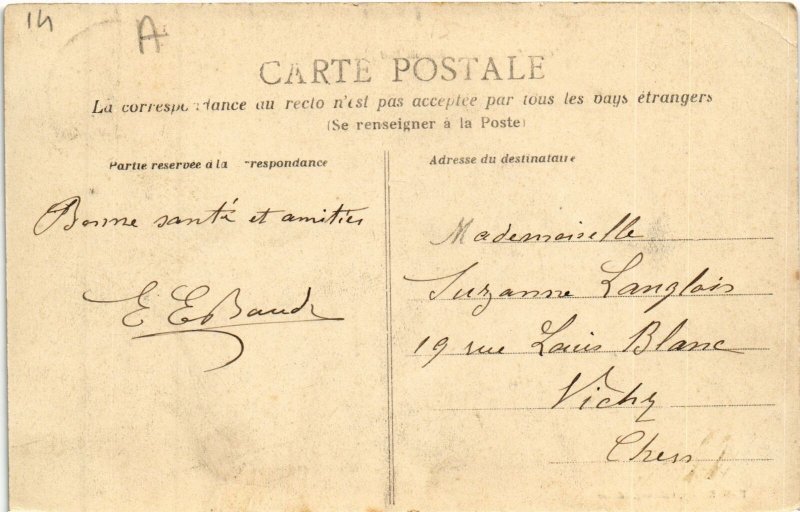 14
A
CARTE POSTALE
La correspondance au recto n'est pas acceptée par tous les pays étrangers
(Se renseigner à la Poste)
Partie reservée à la correspondance
Adresse du destinataire
Bonne santé et amitiés
Mademoiselle
Suzanne Langlois
19 rue Louis Blanc
Vichy